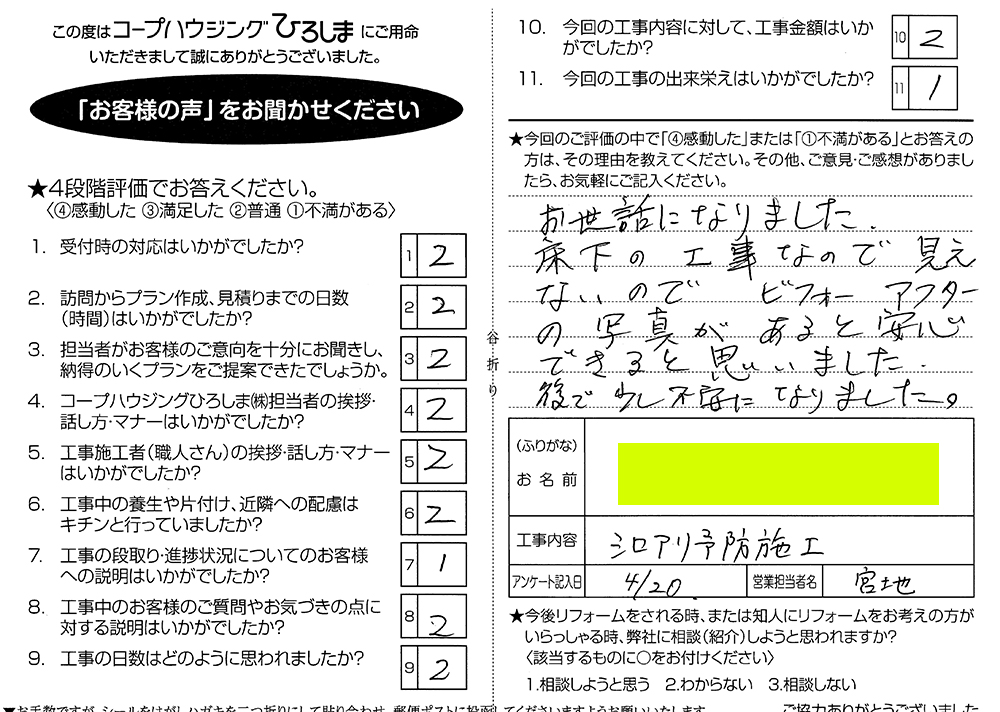 この度はコープハウジングひろしまにご用命
いただきまして誠にありがとうございました。
「お客様の声」をお聞かせください
★4段階評価でお答えください。
〈④感動した ③満足した ②普通 ①不満がある〉
1. 受付時の対応はいかがでしたか?
1 2
2. 訪問からプラン作成、見積りまでの日数
(時間)はいかがでしたか?
2 2
3. 担当者がお客様のご意向を十分にお聞きし、
納得のいくプランをご提案できたでしょうか。
3 2
4. コープハウジングひろしま㈱担当者の挨拶・
話し方・マナーはいかがでしたか?
4 2
5. 工事施工者(職人さん)の挨拶・話し方・マナー
はいかがでしたか?
5 2
6. 工事中の養生や片付け、近隣への配慮は
キチンと行っていましたか?
6 2
7. 工事の段取り・進捗状況についてのお客様
への説明はいかがでしたか?
7 1
8. 工事中のお客様のご質問やお気づきの点に
対する説明はいかがでしたか?
8 2
9. 工事の日数はどのように思われましたか?
9 2
谷折り
10. 今回の工事内容に対して、工事金額はいか
がでしたか?
10 2
11. 今回の工事の出来栄えはいかがでしたか?
11 1
★今回のご評価の中で「④感動した」または「①不満がある」とお答えの
方は、その理由を教えてください。その他、ご意見・ご感想がありまし
たら、お気軽にご記入ください。
お世話になりました.
床下の工事なので見え
ないので ビフォー アフター
の写真があると安心
できると思いました.
後で少し不安になりました。
(ふりがな)
お名前
工事内容 シロアリ予防施工
アンケート記入日 4/20. 営業担当者名 宮地
★今後リフォームをされる時、または知人にリフォームをお考えの方が
いらっしゃる時、弊社に相談(紹介)しようと思われますか?
〈該当するものに○をお付けください〉
1.相談しようと思う 2.わからない 3.相談しない
▼お手数ですが、シールをはがしハガキを二つ折りにして貼り合わせ、郵便ポストに投函してくださいますようお願いいたします。
ご協力ありがとうございました